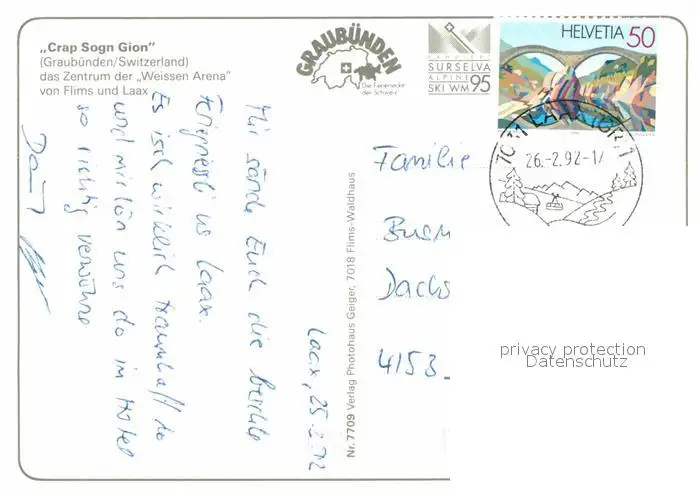 „Crap Sogn Gion"
(Graubünden/Switzerland)
das Zentrum der „Weissen Arena"
von Flims und Laax
GRAUBÜNDEN
Die Ferienecke
der Schweiz
SURSELVA
ALPINE
SKI WM 95
HELVETIA 50
7031 LAAX (GR) 1
26.-2.92-17
Laax, 25.2.92
Mir sände Euch die beschte
Feriegrüessli us Laax.
Es isch würklich traumhaft do
und mir lön uns do im Hotel
so richtig verwöhne
Nr. 7709 Verlag Photohaus Geiger, 7018 Flims-Waldhaus
Familie
Dachs
4153
privacy protection
Datenschutz